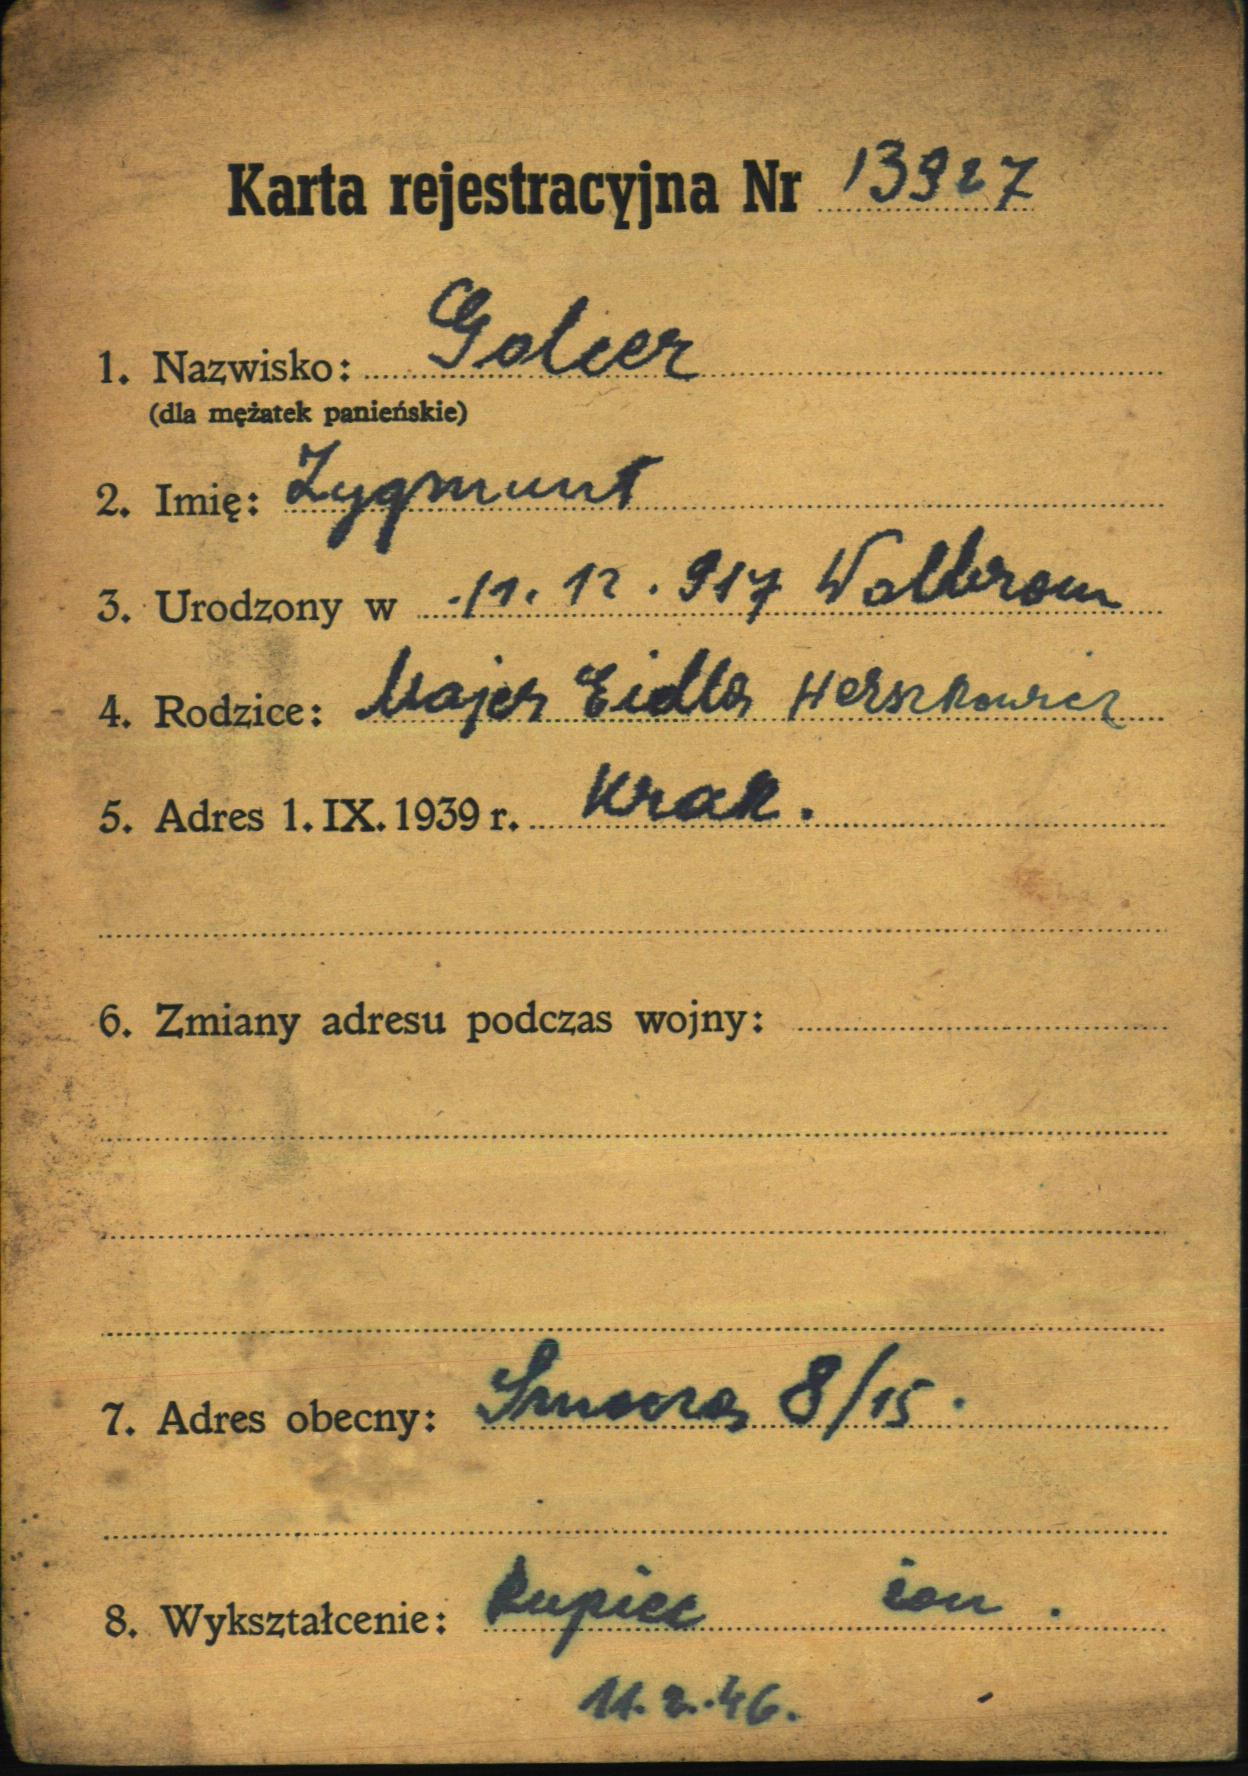 Karta rejestracyjna Nr 13927
1. Nazwisko: Golcer
(dla mężatek panieńskie)
2. Imię: Zygmunt
3. Urodzony w 11. 12. 917 Wolbrom
4. Rodzice: Majer Eidla Herszkowicz
5. Adres 1. IX. 1939 r. Krak.
6. Zmiany adresu podczas wojny:
7. Adres obecny: 8/15.
8. Wykształcenie: Kupiec żon.
11.2.46.